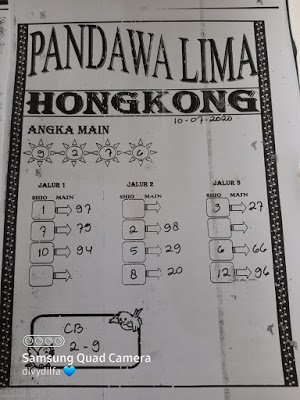 PANDAWA LIMA
HONGKONG
10-07-2020
ANGKA MAIN
9 2 7 6
JALUR 1 JALUR 2 JALUR 3
SHIO MAIN SHIO MAIN SHIO MAIN
1 97 3 27
7 79 2 98
10 94 5 29 6 66
8 20 12 96
CB
2-9
Samsung Quad Camera
divydilfa 💙